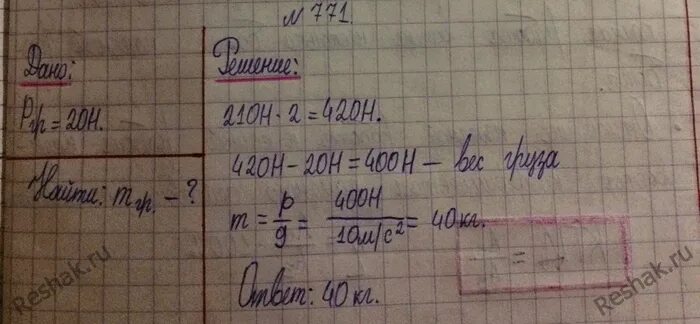 № 771.
Дано:
Pгр = 20Н.
Найти: mгр. – ?
Решение:
210Н · 2 = 420Н.
420Н – 20Н = 400Н – вес груза
m = p/g = 400Н/10м/с² = 40 кг.
Ответ: 40 кг.
Reshak.ru
Reshak.ru